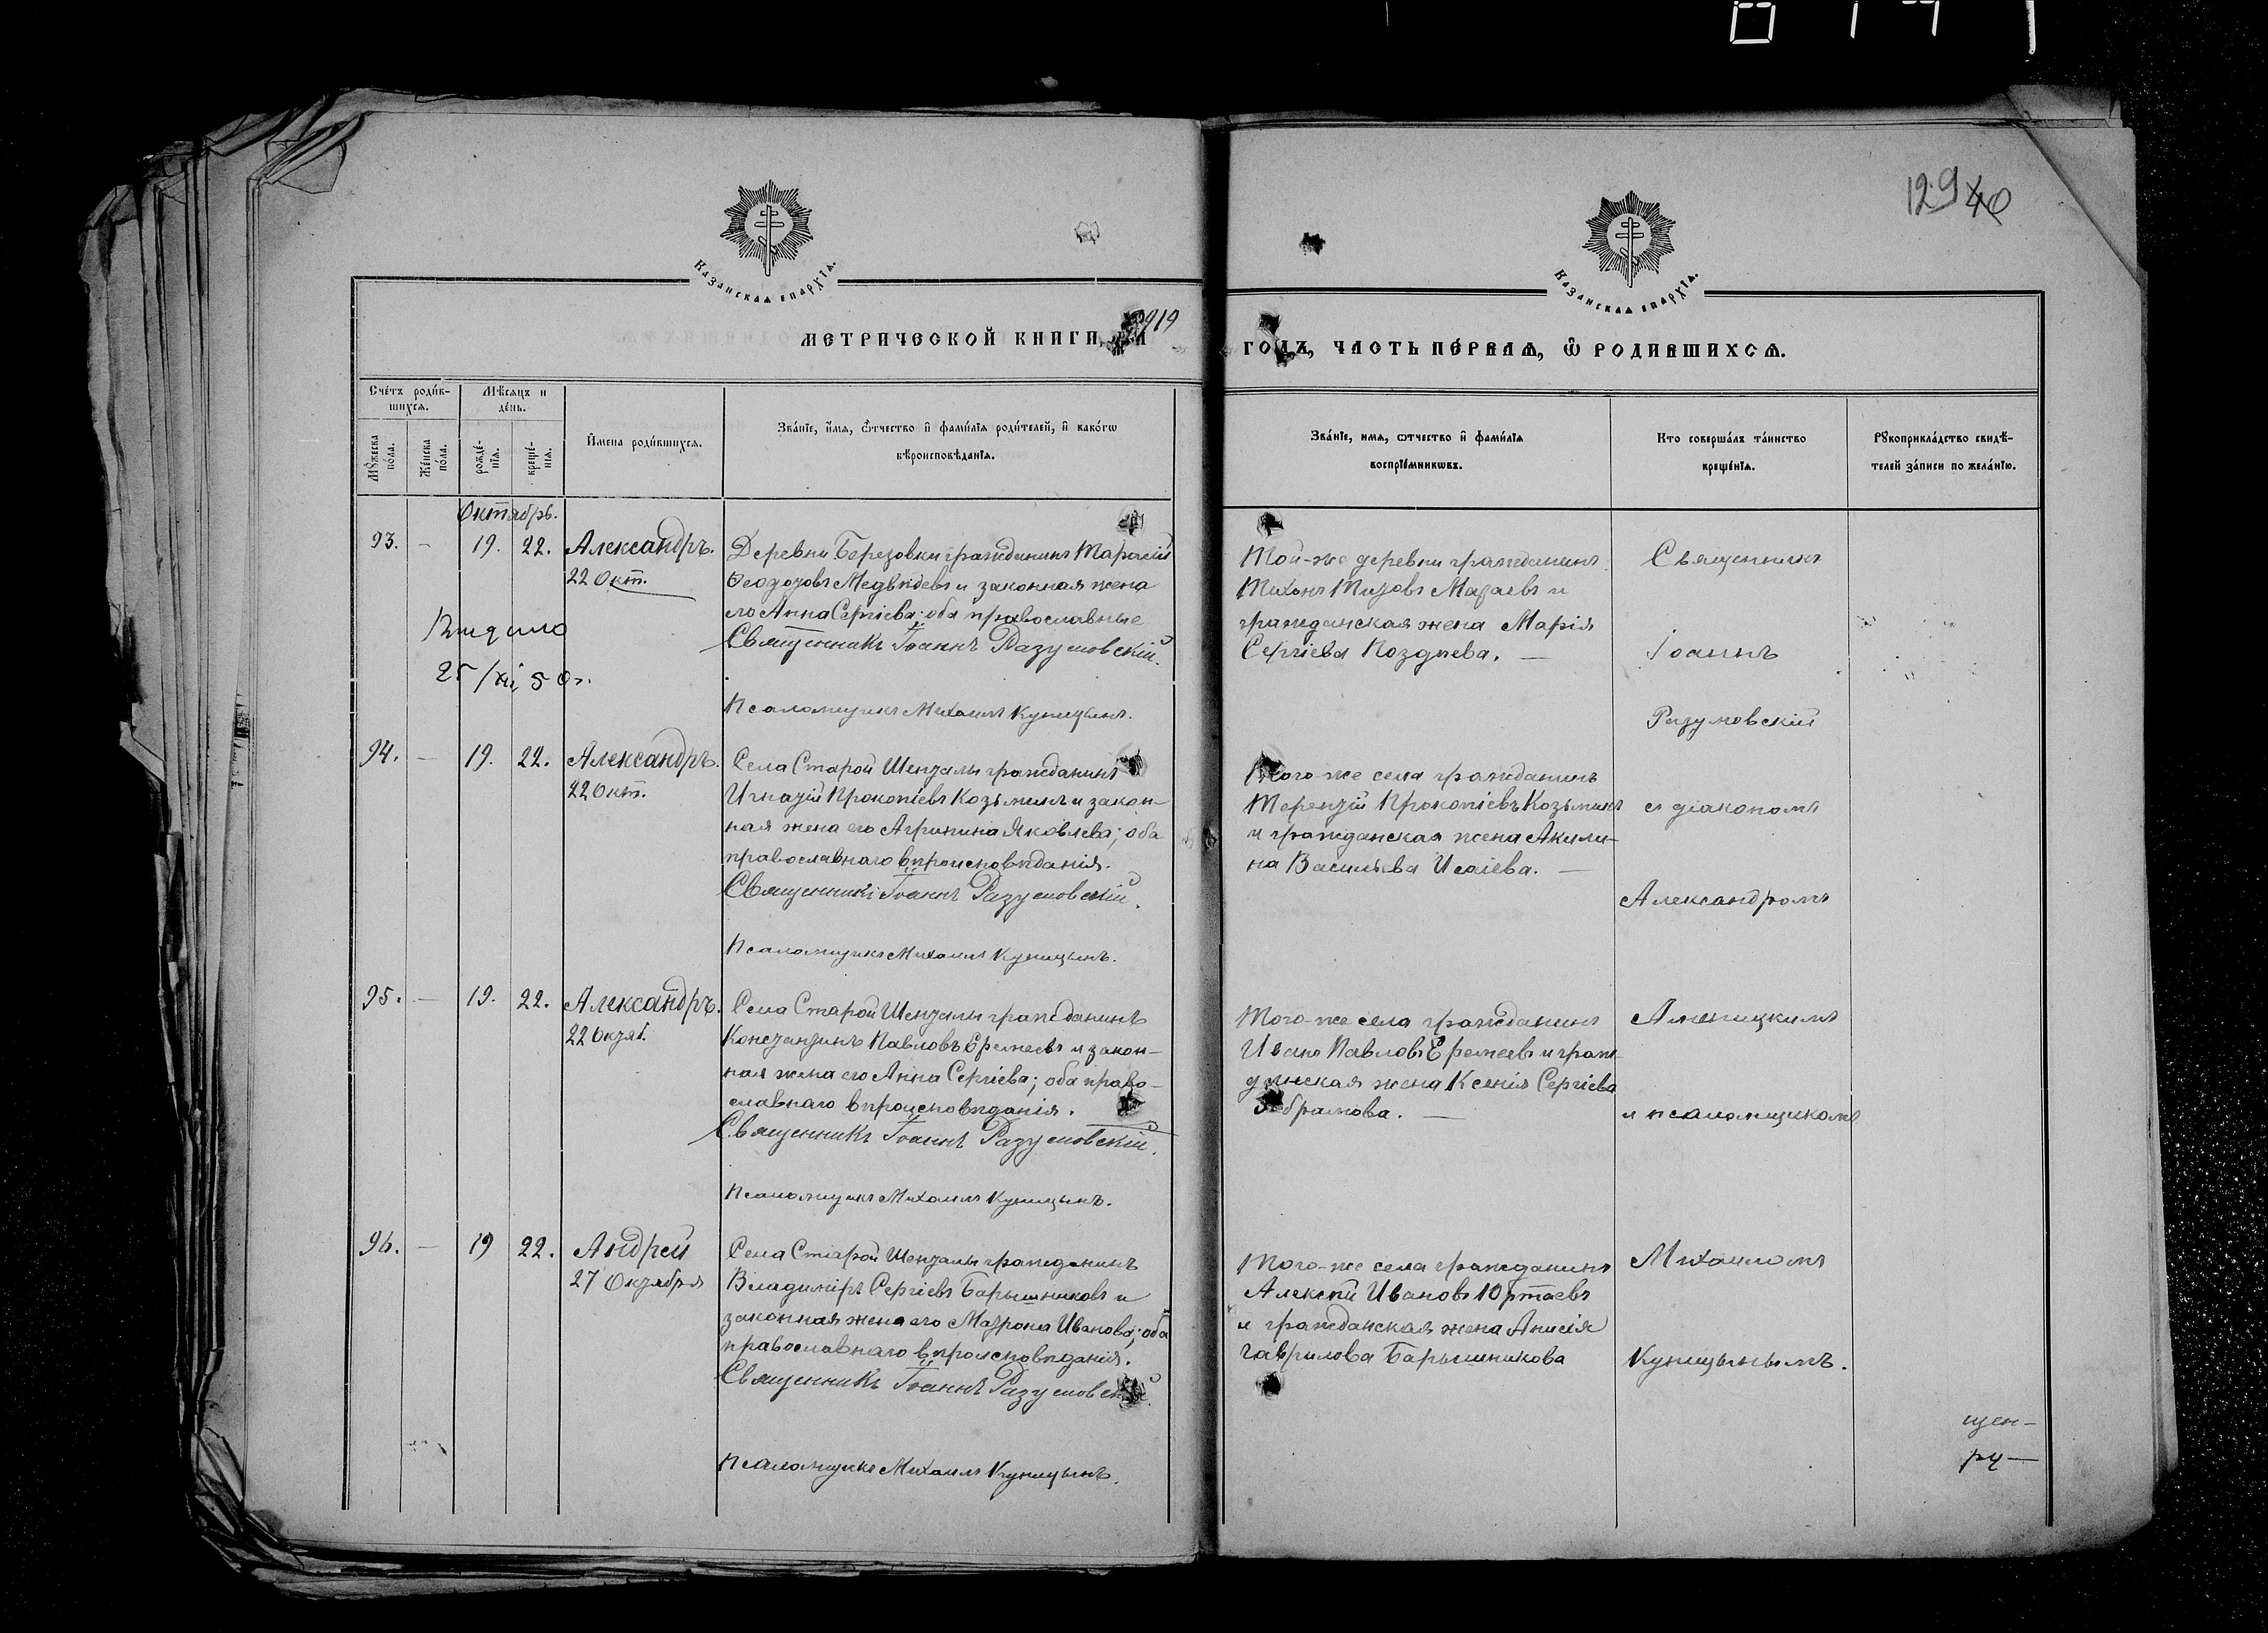 129 40
Казанская епархїа.
Казанская епархїа.
МЕТРИЧЕСКОЙ КНИГИ, НА 1919
ГОДЪ, ЧАСТЬ ПЕ́РВАѦ, Ѽ РОДИВШИХСѦ.
Сче́тъ роди́в-
шихсѧ.
Мѣ́сѧцъ и
де́нь.
Мꙋ́жеска
по́ла.
Же́нска
по́ла.
рожде́-
нїѧ.
креще́-
нїѧ.
И҆мена роди́вшихсѧ.
Зва́нїе, и҆мѧ, ѻ҆́тчество и҆ фами́лїѧ роди́телей, и҆ како́гѡ
вѣроисповѣ́данїѧ.
Зва́нїе, имѧ, ѻтчество и҆ фами́лїѧ
воспрїе́мникѡвъ.
Кто соверша́лъ та́инство
креще́нїѧ.
Рꙋкоприкла́дство свидѣ́-
телей за́писи по жела́нїю.
Октябрь.
93. — 19. 22. Александръ.
22 Окт.
Деревни Березовки гражданинъ Тарасій
Ѳеодоровъ Медвѣдевъ и законная жена
его Анна Сергіева; оба православные
Священникъ Іоаннъ Разумовскій.
Псаломщикъ Михаилъ Куницынъ.
Выдано
25/XII 50 г.
Той-же деревни гражданинъ
Тихонъ Титовъ Матаевъ и
гражданская жена Марія
Сергіева Позднева. —
Священникъ
Іоаннъ
Разумовскій
94. — 19. 22. Александръ.
22 Окт.
Села Старой Шенталы гражданинъ
Игнатій Прокопіевъ Козьминъ и закон-
ная жена его Агрипина Яковлева; оба
православнаго вѣроисповѣданія.
Священникъ Іоаннъ Разумовскій.
Псаломщикъ Михаилъ Куницынъ.
Того-же села гражданинъ
Терентій Прокопіевъ Козьминъ
и гражданская жена Акили-
на Васильева Исаіева. —
съ діакономъ
Александромъ
95. — 19. 22. Александръ.
22 Октяб.
Села Старой Шенталы гражданинъ
Константинъ Павловъ Еремеевъ и закон-
ная жена его Анна Сергіева; оба право-
славнаго вѣроисповѣданія.
Священникъ Іоаннъ Разумовскій.
Псаломщикъ Михаилъ Куницынъ.
Того-же села гражданинъ
Иванъ Павловъ Еремеевъ и граж-
данская жена Ксенія Сергіева
Абрамова. —
Аменицкимъ
и псаломщикомъ
96. — 19 22. Андрей
27 Октября
Села Старой Шенталы гражданинъ
Владиміръ Сергіевъ Барышниковъ и
законная жена его Матрона Иванова; оба
православнаго вѣроисповѣданія.
Священникъ Іоаннъ Разумовскій.
Псаломщикъ Михаилъ Куницынъ.
Того-же села гражданинъ
Алексѣй Ивановъ Юртаевъ
и гражданская жена Анисія
Гаврилова Барышникова
Михаиломъ
Куницынымъ.
щен-
ру-